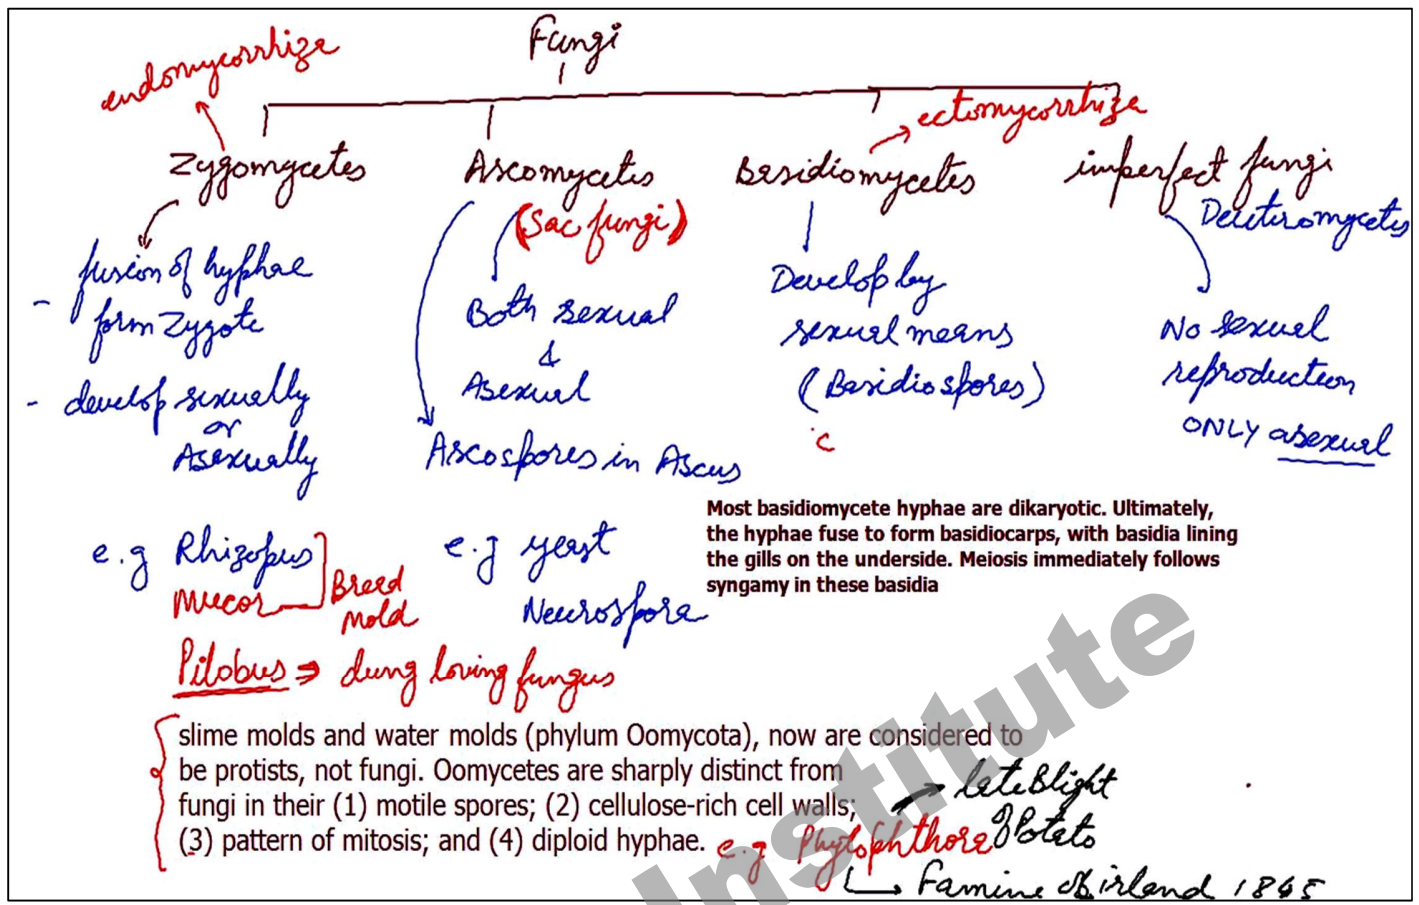 Fungi
endomycorrhiza
ectomycorrhiza
Zygomycetes
Ascomycetes
Basidiomycetes
imperfect fungi
(Sac fungi)
Deuteromycetes
- fusion of hyphae
form Zygote
- develop sexually
or
Asexually
e.g Rhizopus
Mucor
Bread
mold
Pilobus ⇒ dung loving fungus
Both sexual
&
Asexual
Ascospores in Ascus
e.g yeast
Neurospora
Develop by
sexual means
(Basidiospores)
c
No sexual
reproduction
ONLY asexual
Most basidiomycete hyphae are dikaryotic. Ultimately,
the hyphae fuse to form basidiocarps, with basidia lining
the gills on the underside. Meiosis immediately follows
syngamy in these basidia
slime molds and water molds (phylum Oomycota), now are considered to
be protists, not fungi. Oomycetes are sharply distinct from
fungi in their (1) motile spores; (2) cellulose-rich cell walls;
(3) pattern of mitosis; and (4) diploid hyphae. e.g Phytophthora
→ late Blight
of Potato
→ Famine of irland 1845
Institute